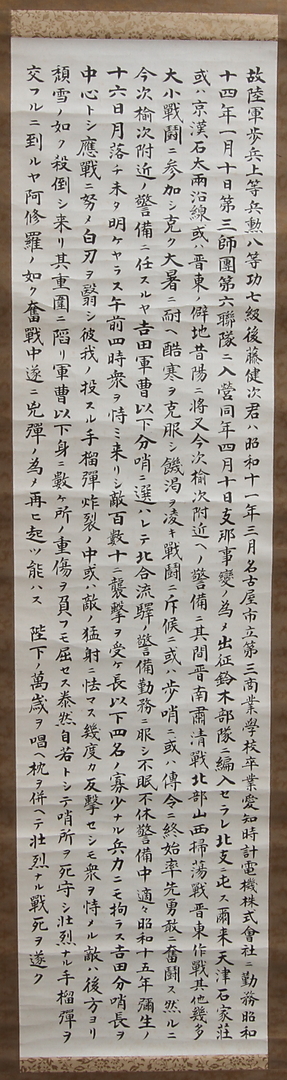 故陸軍歩兵上等兵勲八等功七級後藤健次君ハ昭和十一年三月名古屋市立第三商業学校卒業愛知時計電機株式會社ニ勤務昭和
十四年一月十日第三師團第六聯隊ニ入營同年四月十日支那事變ノ為メ出征鈴木部隊ニ編入セラレ北支ニ屯ス爾来天津石家莊
或ハ京漢石太兩沿線或ハ晋東ノ僻地昔陽ニ將又今次榆次附近ヘノ警備ニ其間晋南肅清戰北部山西掃蕩戰晋東作戰其他幾多
大小戰鬪ニ参加シ克ク大暑ニ耐ヘ酷寒ヲ克服シ饑渇ヲ凌キ戰鬪ニ斥候ニ或ハ歩哨ニ或ハ傳令ニ終始率先勇敢ニ奮鬪ス然ルニ
今次榆次附近ノ警備ニ任スルヤ吉田軍曹以下分哨ニ選ハレテ北合流驛ノ警備勤務ニ服シ不眠不休警備中適々昭和十五年彌生ノ
十六日月落チ未タ明ケヤラス午前四時衆ヲ恃ミ来リシ敵百数十ニ襲擊ヲ受ケ長以下四名ノ寡少ナル兵力ニモ拘ラス吉田分哨長ヲ
中心トシ應戰ニ努メ白刃ヲ翳シ彼我ノ投スル手榴彈炸裂ノ中或ハ敵ノ猛射ニ怯マス幾度カ反擊セシモ衆ヲ恃メル敵ハ後方ヨリ
頽雪ノ如ク殺倒シ来リ其重圍ニ陷リ軍曹以下身ニ数ヶ所ノ重傷ヲ負フモ屈セス泰然自若トシテ哨所ヲ死守シ壮烈ナル手榴彈ヲ
交フルニ到ルヤ阿修羅ノ如ク奮戰中遂ニ兇彈ノ為メ再ヒ起ツ能ハス 陛下ノ萬歳ヲ唱ヘ枕ヲ併ヘテ壮烈ナル戰死ヲ遂ク